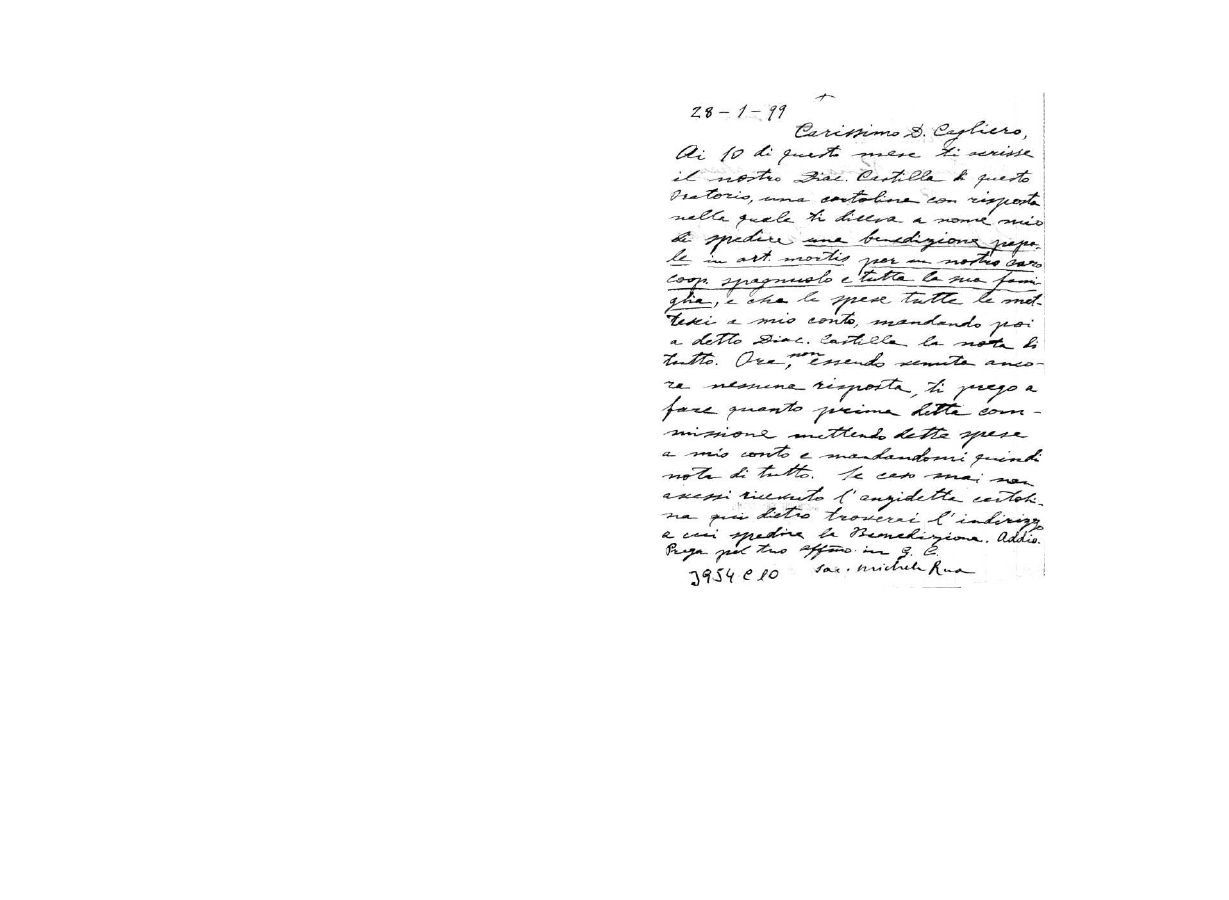 +
28-1-99
Carissimo D. Cagliero,
Ai 10 di questo mese ti scrisse
il nostro Diac. Castilla di questo
Oratorio, una cartolina con risposta
nella quale ti diceva a nome mio
di spedire una benedizione papa-
le in art. mortis per un nostro caro
coop. spagnuolo e tutta la sua fami-
glia, e che le spese tutte le met-
tessi a mio conto, mandando poi
a detto Diac. Castilla la nota di
tutto. Ora, non essendo venuta anco-
ra nessuna risposta, ti prego a
fare quanto prima detta com-
missione mettendo dette spese
a mio conto e mandandomi quindi
nota di tutto. Se caso mai non
avessi ricevuto l'anzidetta cartoli-
na qui dietro troverai l'indirizzo
a cui spedire la Benedizione. Addio.
Prega pel tuo affmo in G. C.
Sac. Michele Rua
3954 C 10